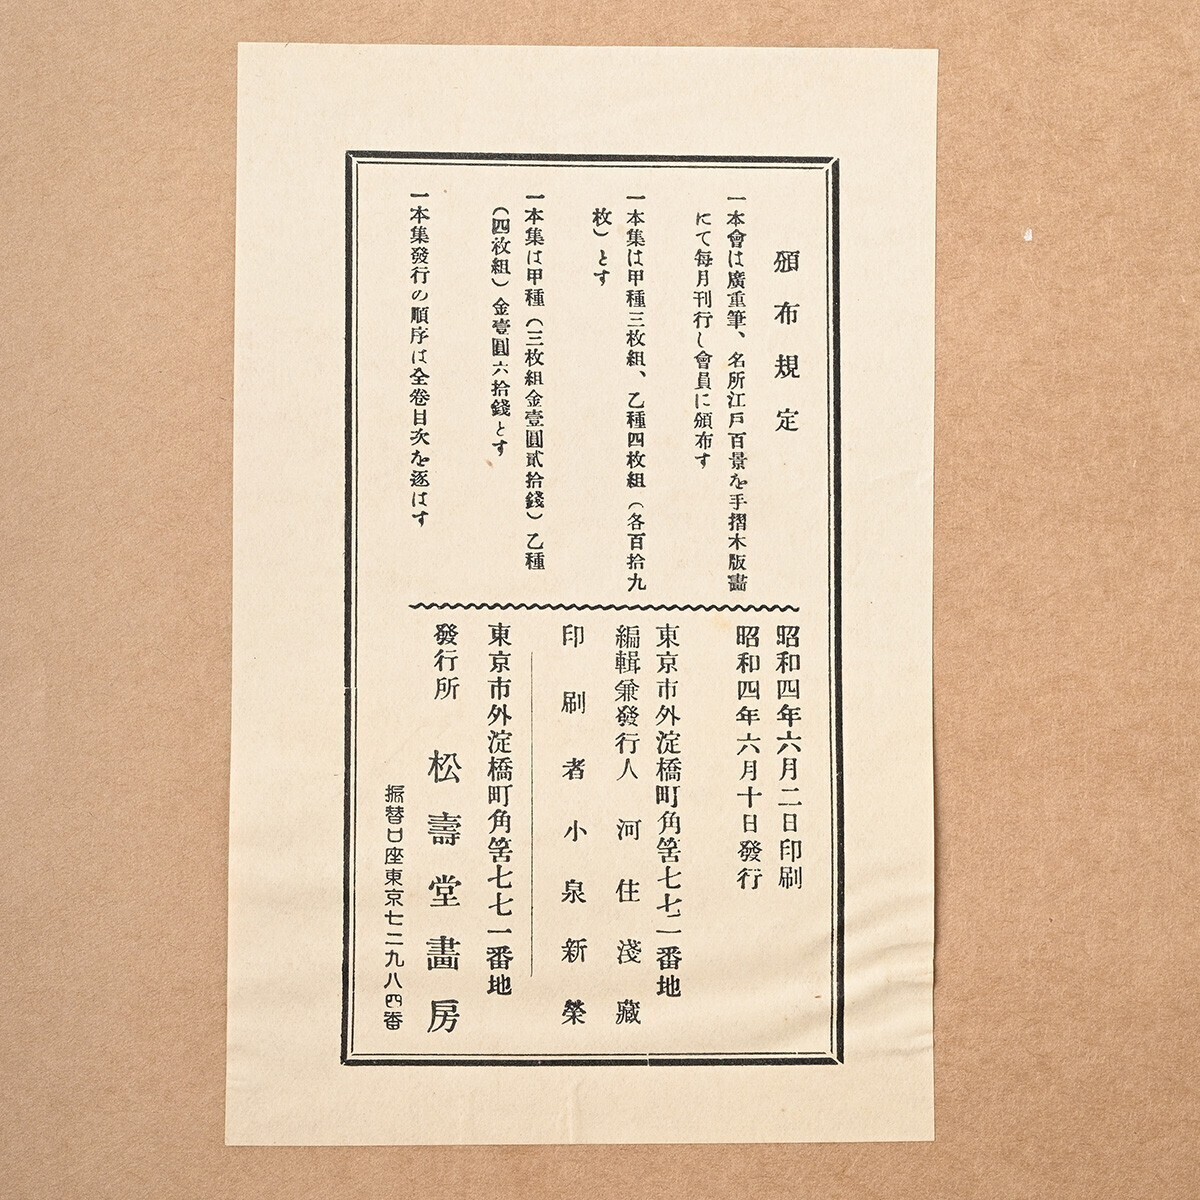 頒布規定
一本會は廣重筆、名所江戸百景を手摺木版畵
にて每月刊行し會員に頒布す
一本集は甲種三枚組、乙種四枚組（各百拾九
枚）とす
一本集は甲種（三枚組金壹圓貳拾錢）乙種
（四枚組）金壹圓六拾錢とす
一本集發行の順序は全卷目次を逐はす
昭和四年六月二日印刷
昭和四年六月十日發行
東京市外淀橋町角筈七七一番地
編輯兼發行人 河住淺藏
印刷者 小泉新榮
東京市外淀橋町角筈七七一番地
發行所 松壽堂畫房
振替口座東京七二九八四番